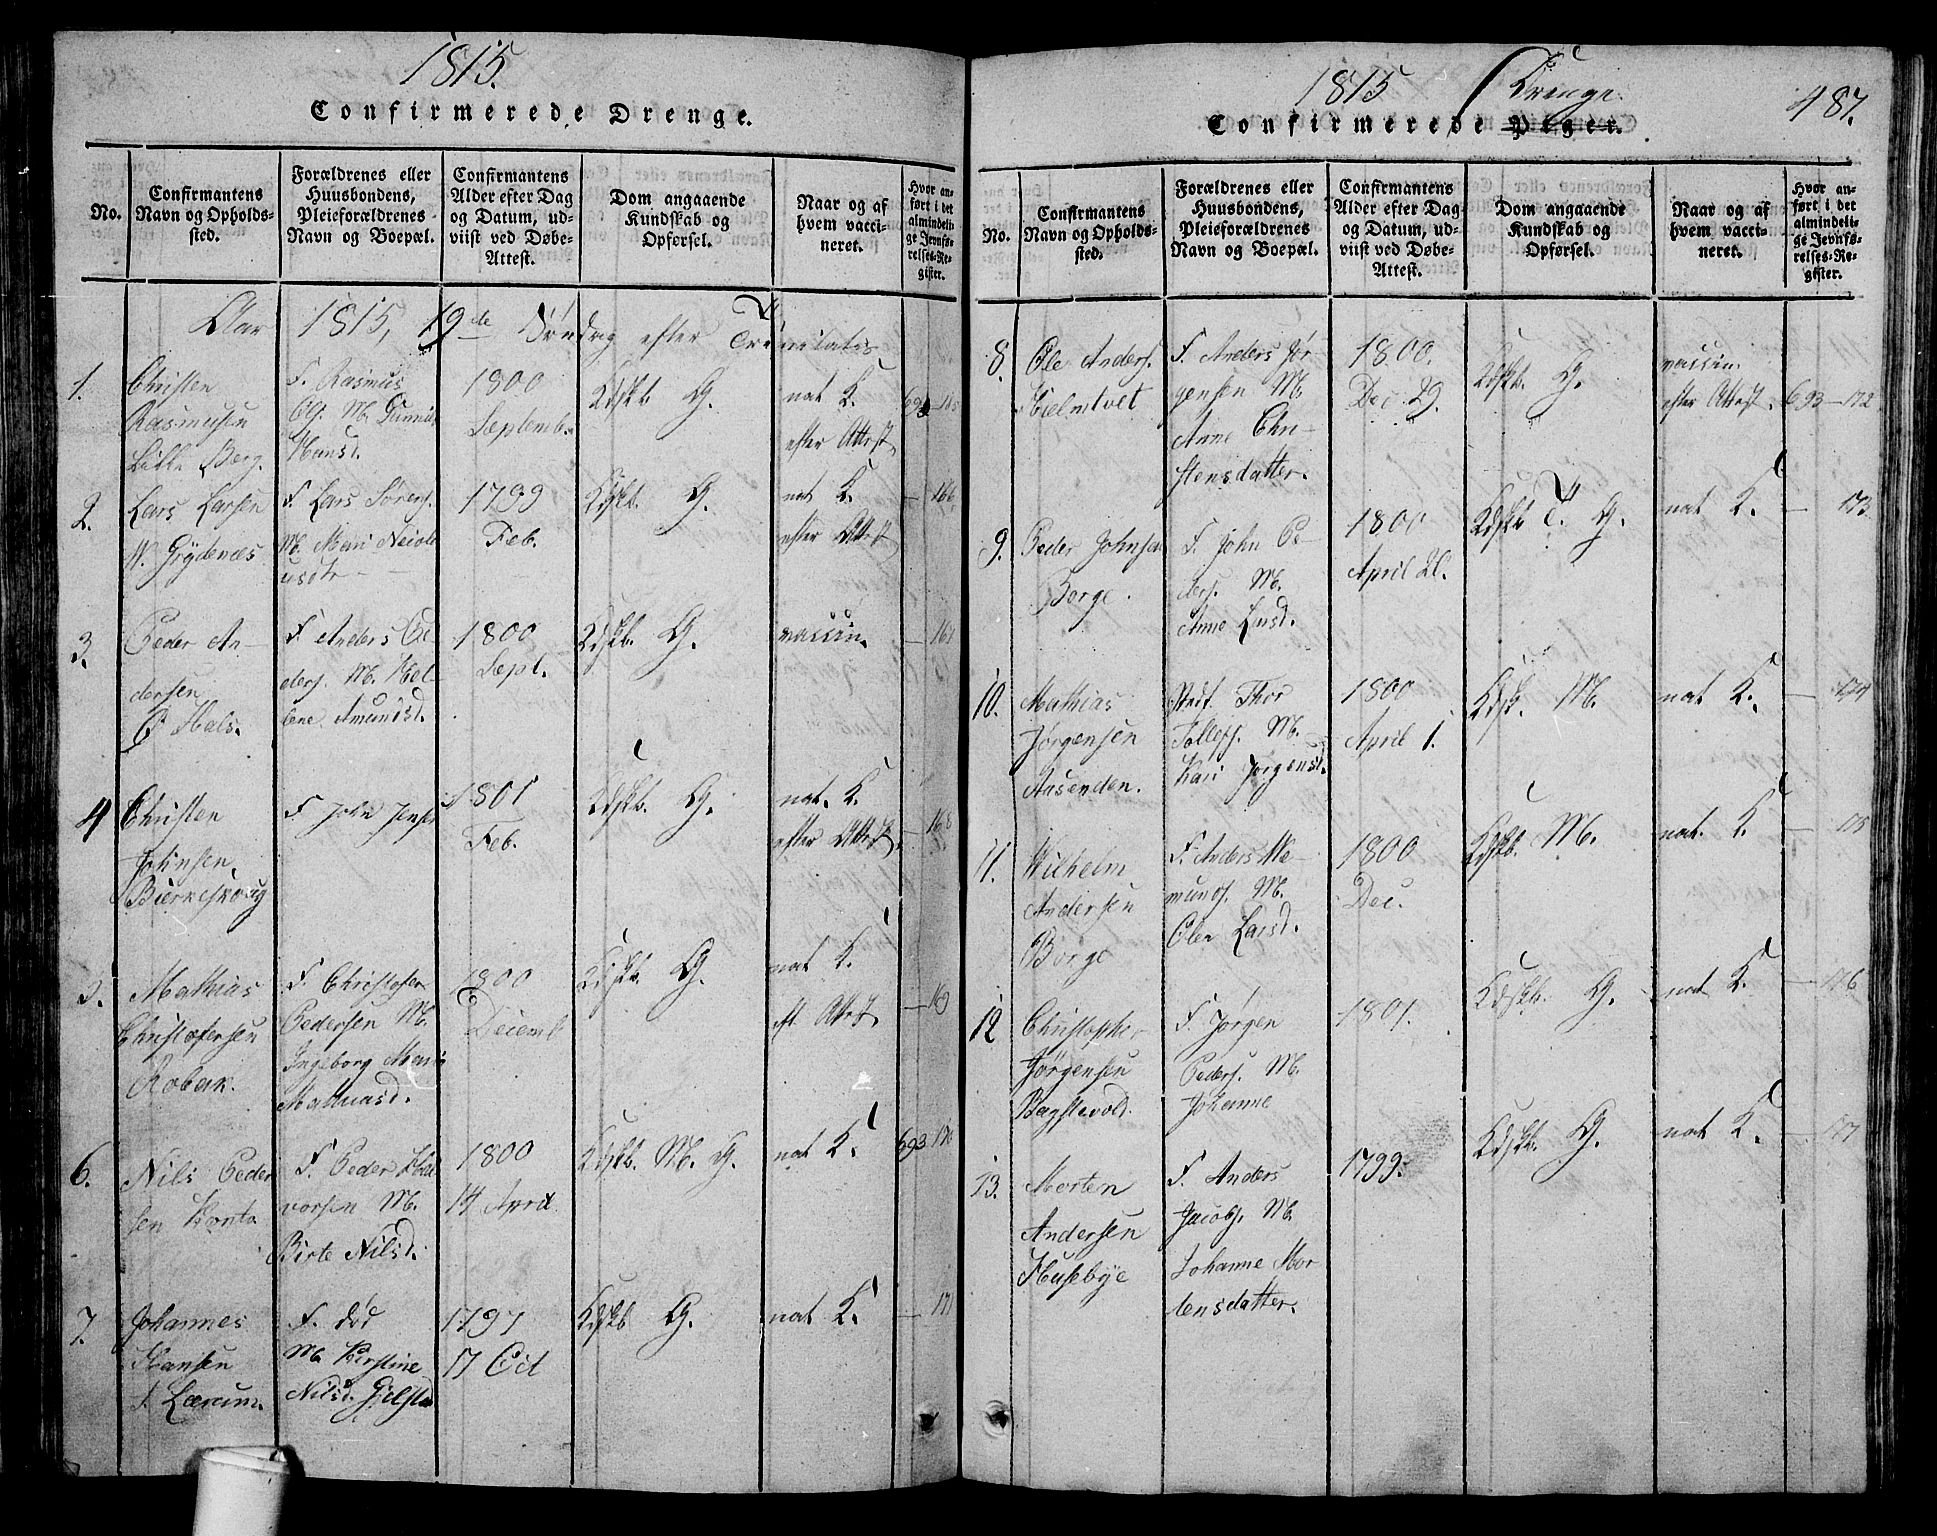 1815.
Confirmerede Drenge.
No.
Confirmantens
Navn og Opholds-
sted.
Forældrenes eller
Huusbondens,
Pleieforældrenes
Navn og Boepæl.
Confirmantens
Alder efter Dag
og Datum, ud-
viist ved Døbe-
Attest.
Dom angaaende
Kundskab og
Opførsel.
Naar og af
hvem vacci-
neret.
Hvor an-
ført i det
almindeli-
ge Jevnfø-
relses-Re-
gister.
Aar 1815, 19de Søndag efter Trinitatis
1.
Christen
Rasmusen
Lille Berg.
F. Rasmus
M. Gunnild
Hansd.
1800
Septemb.
Kdskb. G.
nat K.
efter Attest
2.
Lars Larsen
N. Grydenes
F. Lars Sørens.
M. Mari
1799
Feb.
Kdskb. G.
nat K.
efter Attest
— 166
3.
Peder An-
dersen
Ø Hals.
F. Anders Pe-
ders. M. Hel-
lene Amundsd.
1800
Sept.
Kdskb. G.
vaccin.
— 167
4
Christen
Johnsen
Bierkeskoug
F. John Jens.
1801
Feb.
Kdskb. G.
nat. K.
efter Attest.
— 168
5.
Mathias
Christofersen
Robek.
F. Christofer
Pedersen M.
Ingeborg Marie
Mathiasd.
1800
Decemb
Kdskb. G.
nat K.
eft. Attest.
— 169
6.
Nils Peder
sen Honta
F. Peder Hal
vorsen M.
Birte Nilsd.
1800
14 April
Kdskb. M. G.
nat K.
693 170
7.
Johannes
Hansen
F. død
M. Kirstine
Nilsd.
1797
17 Oct
Kdskb G.
nat K.
— 171
1815 Drenge.
487.
Confirmerede Piger.
No.
Confirmantens
Navn og Opholds-
sted.
Forældrenes eller
Huusbondens,
Pleieforældrenes
Navn og Boepæl.
Confirmantens
Alder efter Dag
og Datum, ud-
viist ved Døbe-
Attest.
Dom angaaende
Kundskab og
Opførsel.
Naar og af
hvem vacci-
neret.
Hvor an-
ført i det
almindeli-
ge Jevnfø-
relses-Re-
gister.
8.
Ole Anders.
Hielmtvet
F. Anders Jør-
gensen M.
Anne Chri-
stensdatter.
1800.
Dec. 29.
Kdskb. G.
vaccin.
efter Attest.
693—172
9.
Peder Johnsen
Borge.
F. John Pe-
ders. M.
Anne Larsd.
1800
April 21.
Kdskb T. G.
nat K.
— 173
10.
Mathias
Jørgensen
Aasenden.
Stedf. Thor
Tollefs. M.
Kari Jørgensd.
1800
April 1.
Kdsk. M.
nat K.
— 174
11.
Wilhelm
Andersen
Borge
F. Anders We-
munds. M.
Olea Larsd.
1800
Dec.
Kdskb. M.
nat. K.
— 175
12
Christopher
Jørgensen
Bagstevold.
F. Jørgen
Peders. M.
Johanne
1801.
Kdskb. G.
nat K.
— 176
13.
Morten
Andersen
Husebye
F. Anders
Jacobs. M.
Johanne Mor
tensdatter.
1799.
Kdskb. G.
nat K.
— 177